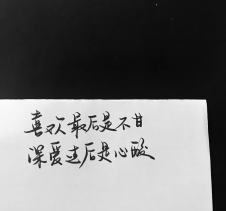 喜欢最后是不甘
深爱过后是心酸